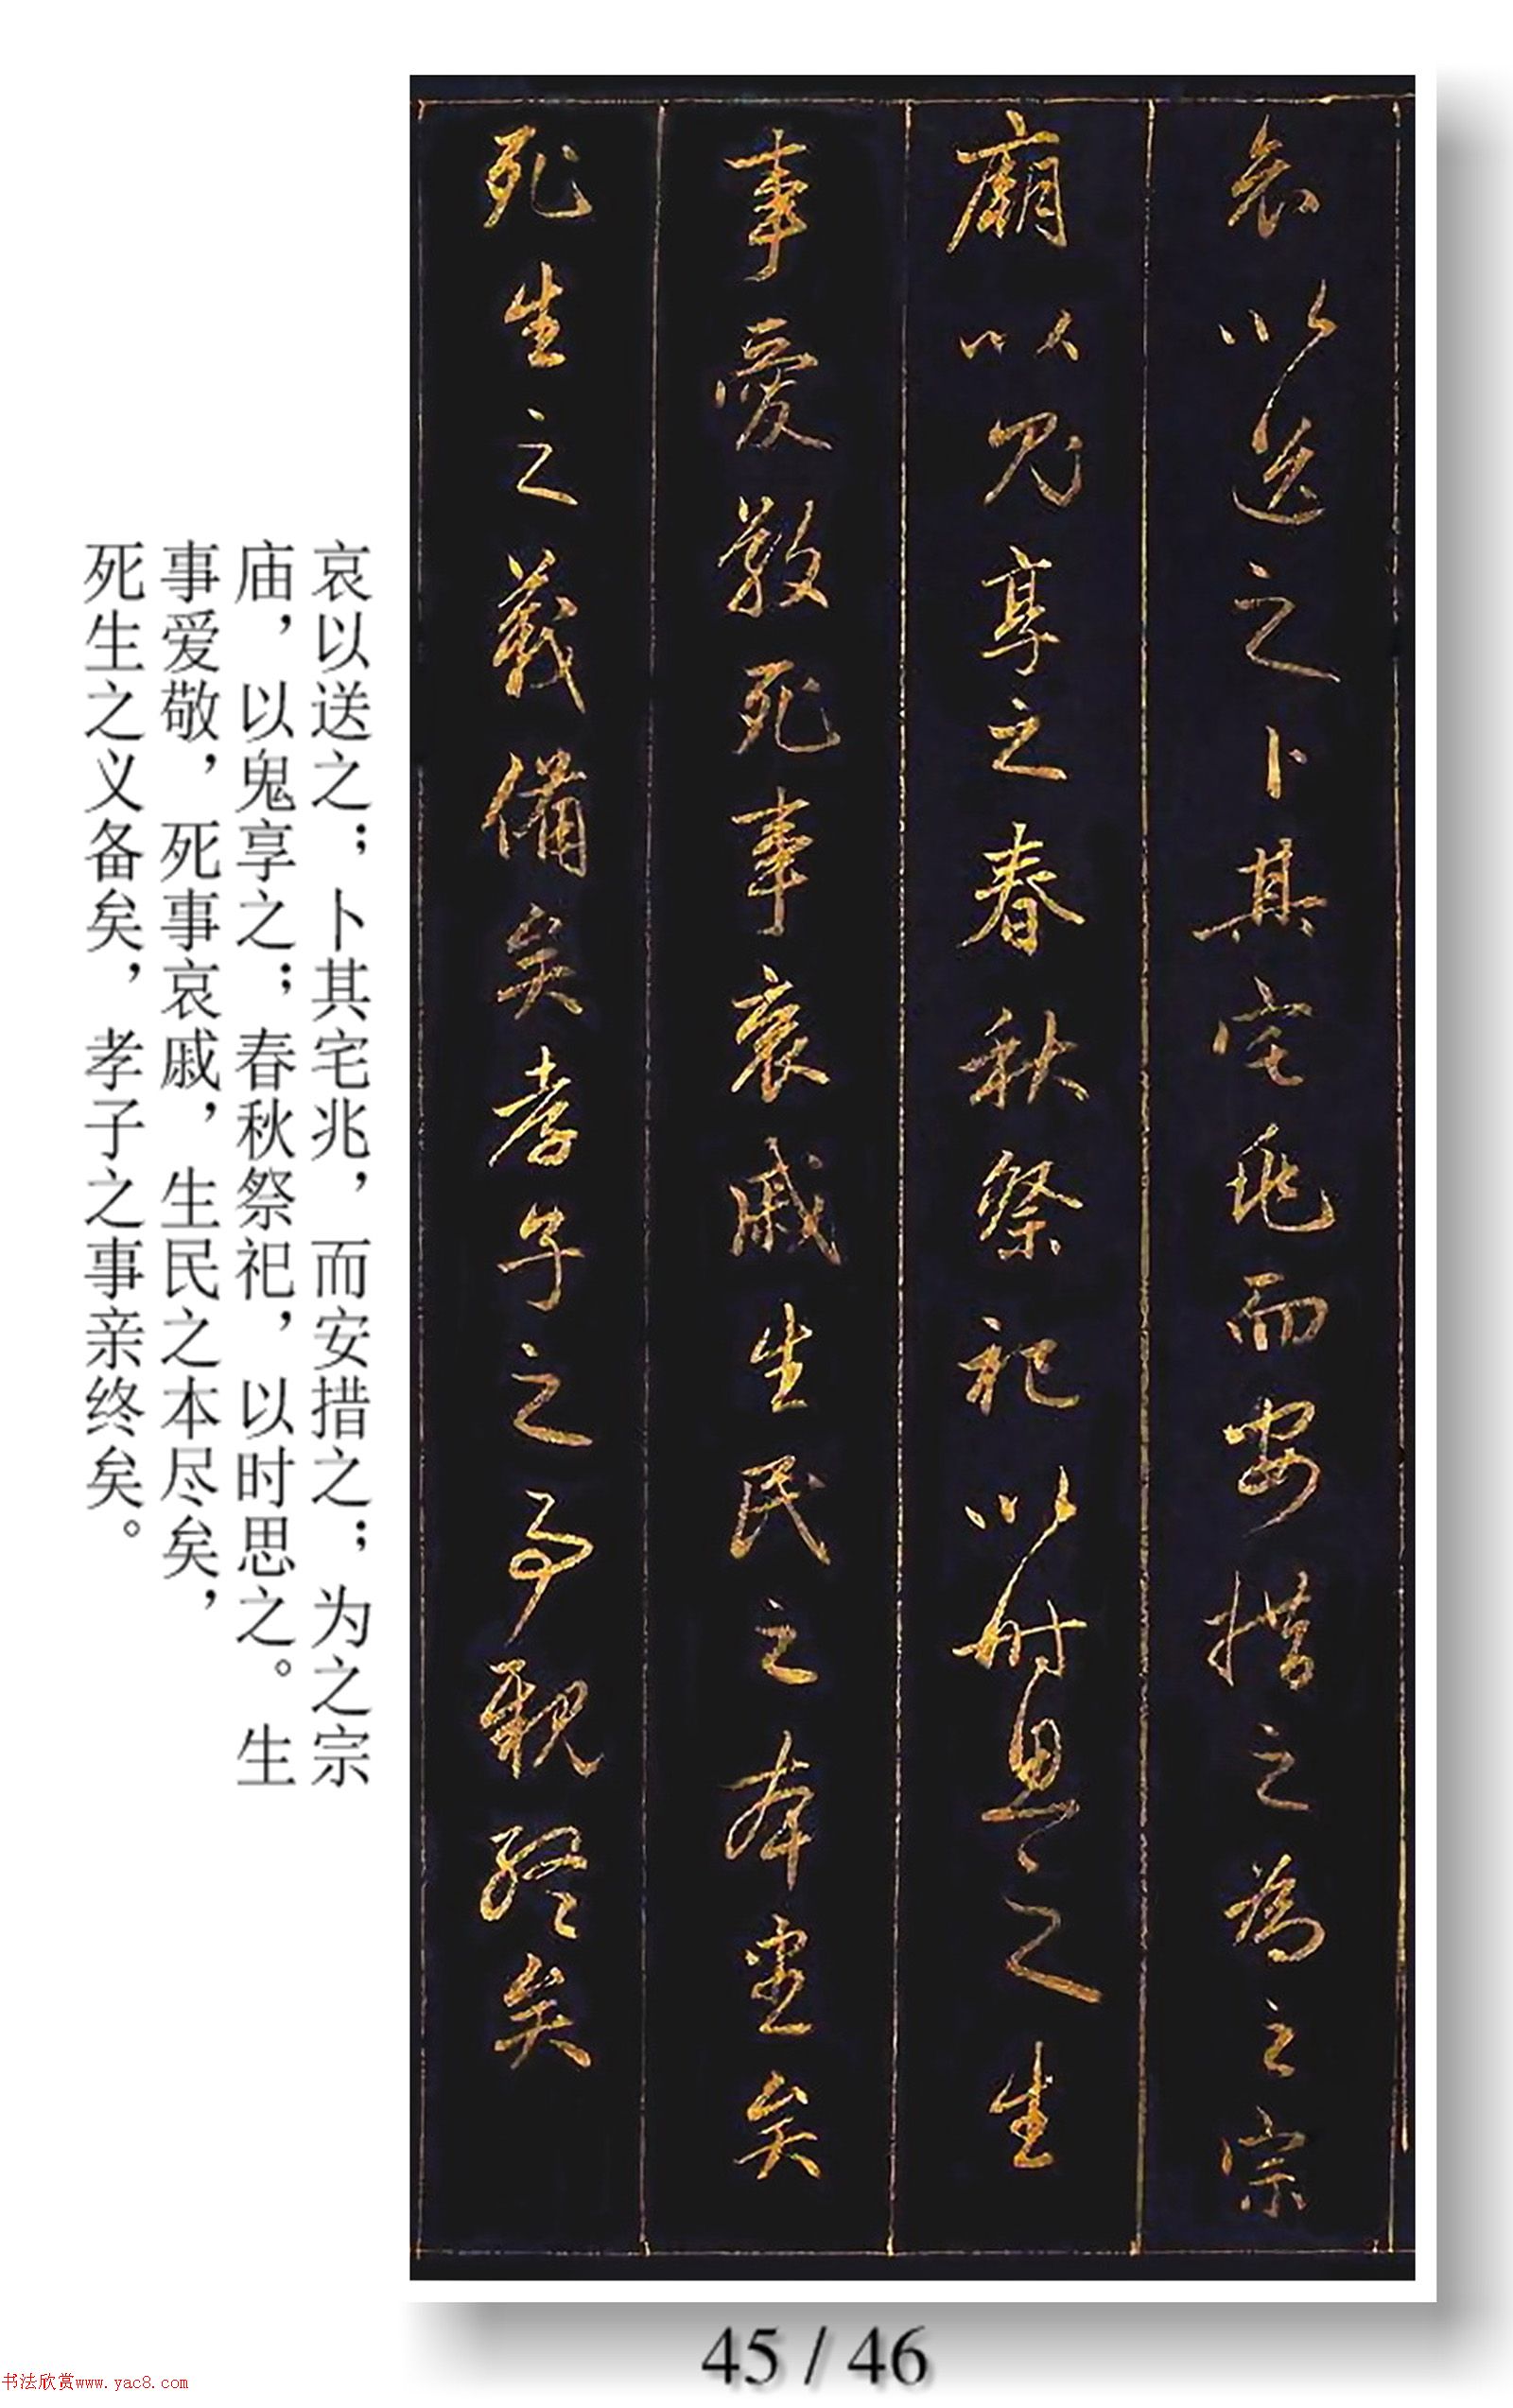 哀以送之卜其宅兆而安措之為之宗
廟以鬼享之春秋祭祀以時思之生
事愛敬死事哀戚生民之本盡矣
死生之義備矣孝子之事親終矣
哀以送之；卜其宅兆，而安措之；为之宗
庙，以鬼享之；春秋祭祀，以时思之。生
事爱敬，死事哀戚，生民之本尽矣，
死生之义备矣，孝子之事亲终矣。
45 / 46
书法欣赏www.yac8.com